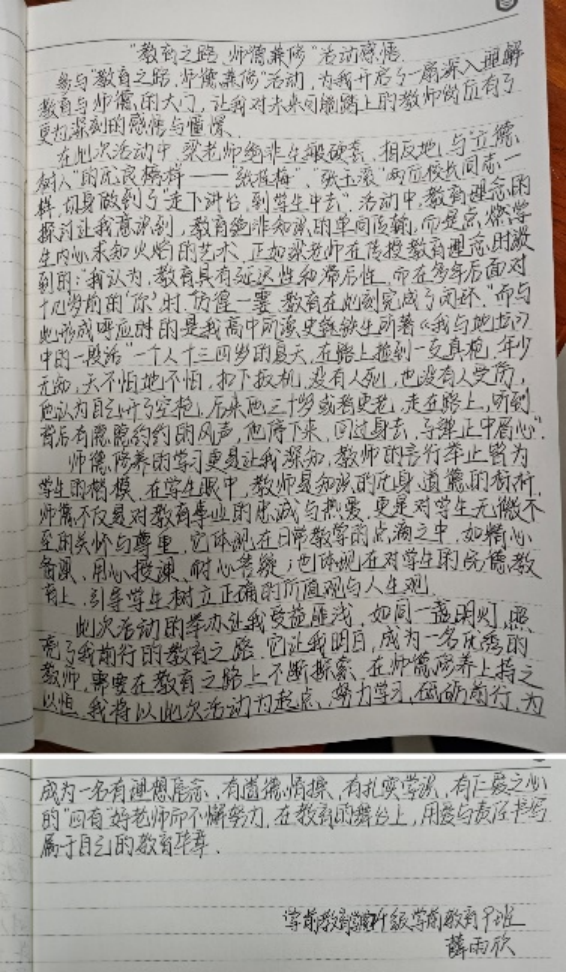 "教育之路，师德兼修"活动感悟
参与"教育之路，师德兼修"活动，为我开启了一扇深入理解
教育与师德的大门，让我对未来间踏上的教师岗位有了
更为深刻的感悟与憧憬。
在此次活动中，梁老师绝非生搬硬套，相反地，与"立德
树人"的优良榜样——"张桂梅"、"张玉滚"两位校长同志一
样，切身做到了"走下讲台，到学生中去"。活动中，教育理念的
探讨让我意识到，教育绝非知识的单向传输，而是点燃学
生内心求知火焰的艺术。正如梁老师在传授教育理念时谈
到的："我认为，教育具有延迟性和滞后性，而在多年后面对
十几岁前的'你'时，仿徨一霎，教育在此刻完成了闭环。"而与
此形成呼应时的是我高中所读史铁生所著《我与地坛》
中的一段话"一个人十三四岁的夏天，在路上捡到一支真枪，年少
无知，天不怕地不怕，扣下扳机，没有人死，也没有人受伤，
他认为自己开了空枪。后来他三十岁或者更老，走在路上，听到
背后有隐隐约约的风声，他停下来，回过身去，子弹正中眉心"。
师德修养的学习更是让我深知，教师的言行举止皆为
学生的楷模。在学生眼中，教师是知识的化身，道德的标杆。
师德不仅是对教育事业的忠诚与热爱，更是对学生无微不
至的关怀与尊重。它体现在日常教学的点滴之中，如精心
备课、用心授课、耐心答疑；也体现在对学生的品德教
育上，引导学生树立正确的价值观与人生观。
此次活动的举办让我受益匪浅，如同一盏明灯，照
亮了我前行的教育之路。它让我明白，成为一名优秀的
教师，需要在教育之路上不断探索，在师德修养上持之
以恒。我将以此次活动为起点，努力学习，砥砺前行，为
成为一名有理想信念、有道德情操、有扎实学识、有仁爱之心
的"四有"好老师而不懈努力，在教育的舞台上，用爱与责任书写
属于自己的教育华章。
学前教育学院级学前教育9班
薛雨欣